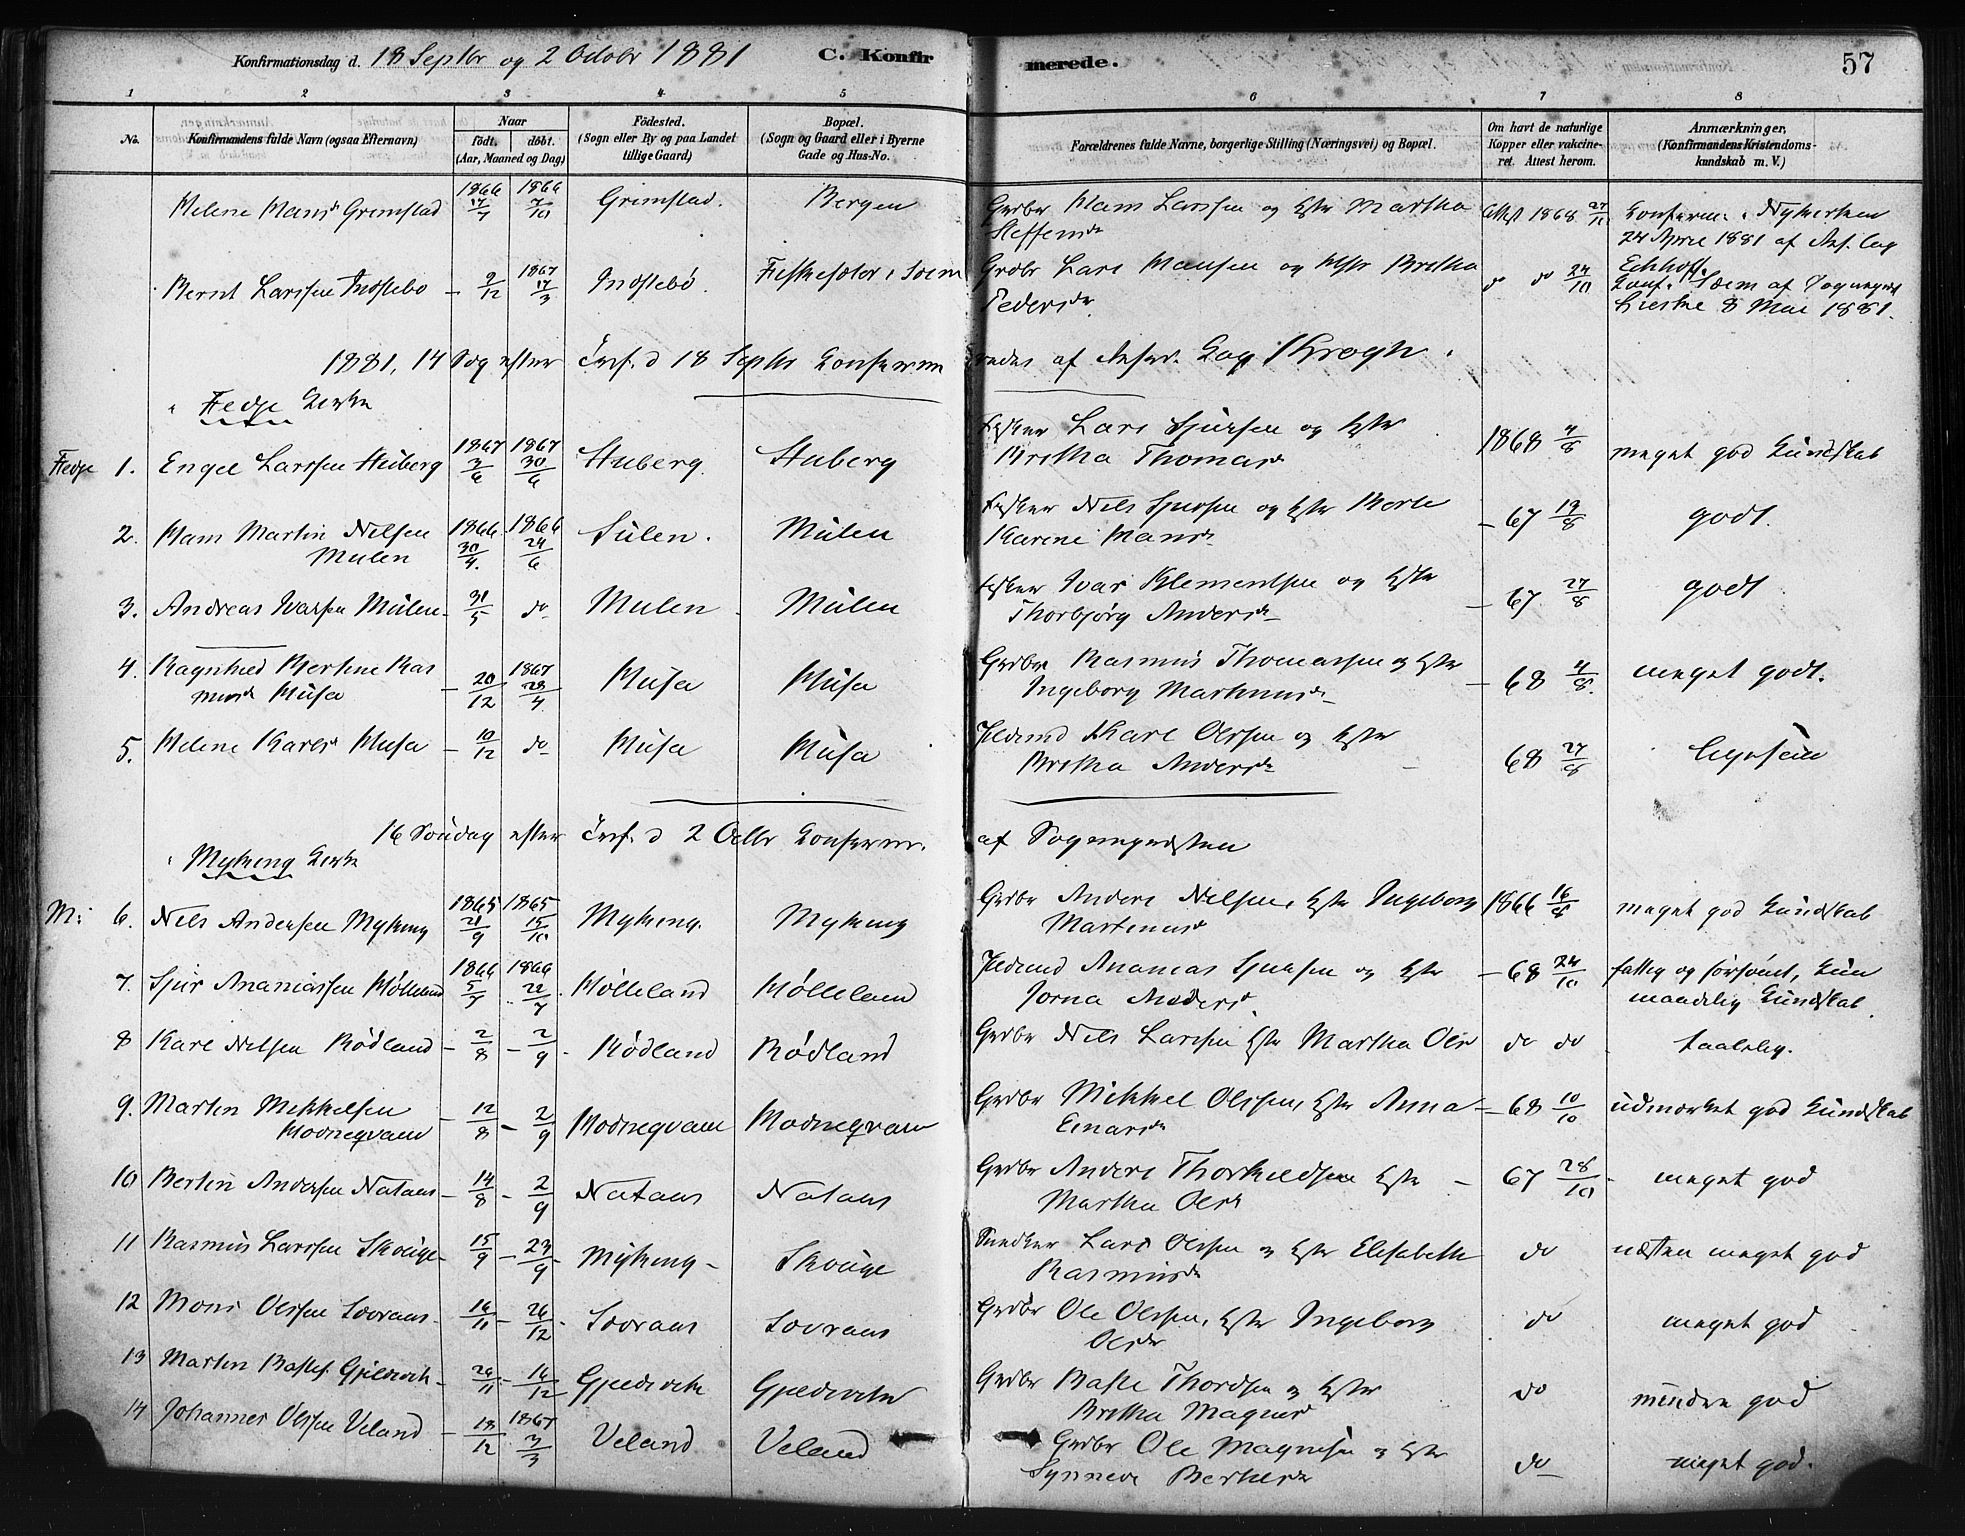 Konfirmationsdag d. 18 Septbr og 2 Octobr 1881 C. Konfirmerede. 57
1 2 3 4 5 6 7 8
No. Konfirmandens fulde Navn (ogsaa Efternavn) Naar födt. döbt. (Aar, Maaned og Dag) Födested. (Sogn eller By og paa Landet tillige Gaard) Bopæl. (Sogn og Gaard eller i Byerne Gade og Hus-No. Forældrenes fulde Navne, borgerlige Stilling (Næringsvei) og Bopæl. Om havt de naturlige Kopper eller vakcineret. Attest herom. Anmærkninger, (Konfirmandens Kristendomskundskab m. V.)
Helene Hansd Grimstad 1866 17/7 1866 7/10 Grimstad. Bergen Grdbr Hans Larssen og Hstr Martha Steffensdr Attest 1868 27/11 Konferm. i Nykirken 24 April 1881 af
Bernt Larssen Indstebo - 9/12 1867 17/3 Indstebö. i Soem Grdbr Lars Hansen og Hstr Britha Pedersdr do do 24/10 Konf. i Soem af Sognepr. 8 Mai 1881.
1881, 14 Søg efter Tref. d 18 Septbr Konfermeredes af Krogh.
i Fedje Kirke
Fedje 1. Engel Larssen Stuberg 1867 3/6 1867 30/6 Stuberg. Stuberg Fisker Lars Sjursen og Hstr Britha Thomasdr 1868 4/8 meget god Kundskab
2. Hans Martin Nilsen Mulen 1866 30/4 1866 24/6 Sulen. Mulen Fisker Nils Sjursen og Hstr Karine Hansdr - 67 19/8 godt.
3. Andreas Ivarsen Mulen - 31/5 do Mulen Mulen Fisker Ivar Klementsen og Hstr Thorbjörg Andersdr - 67 27/8 godt
4. Ragnhild Bertine Rasmusd Husa - 20/12 1867 28/4 Husa Husa Grdbr Rasmus Thomassen og Hstr Ingeborg Martinusdr - 68 4/8. meget godt.
5. Helene Karlsd Husa - 10/12 do Husa Husa Karl Olssen og Hstr Britha Andersdr 68 27/8
16 Söndag efter Tref. d 2 Octbr Konferm. af Sognepresten
i Myking Kirke
M: 6. Nils Andersen Myking 1865 21/9 1865 15/10 Myking. Myking Grdbr Anders Nilsen, Hstr Ingeborg Martinusd 1866 16/8 meget god Kundskab
7. Sjur Ananiassen Hölleland 1866 5/5 1866 22/7 Hölleland Hölleland Ananias Sjursen og Hstr Jorna Andersd. - 68 24/10 fattig og forsömt, kun maadelig Kundskab.
8 Karl Nilsen Rödland - 2/8 - 2/9 Rödland Rödland Grdbr Nils Larssen Hstr Martha Olsd do do taalelig.
9. Martin Mikkelsen Hodneqvam - 12/8 - 2/9 Hodneqvam Hodneqvam Grdbr Mikkel Olssen, Hstr Anna Einarsdr - 68 10/10 udmærket god Kundskab
10 Bertin Andersen Nataas - 14/8 - 2/9 Nataas Nataas Grdbr Anders Thorkildsen Hstr Martha Olsd - 67 28/10 meget god
11 Rasmus Larssen Skouge - 15/9 - 23/9 Myking - Skouge Snedker Lars Olssen og Hstr Elisabeth Rasmusdr do næsten meget god
12 Mons Olssen Sævraas - 16/11 - 26/12 Sævraas Sævraas Grdbr Ole Olssen, Hstr Ingeborg Olsdr do meget god
13 Martin Bastes. Gjeldvik - 26/11 - 16/12 Gjeldvik Gjeldvik Grdbr Baste Thordsen og Hstr Britha Magnesd do mindre god
14 Johannes Olssen Veland - 18/12 1867 3/3 Veland Veland Grdbr Ole Magnesen og Hstr Synneve do meget god.